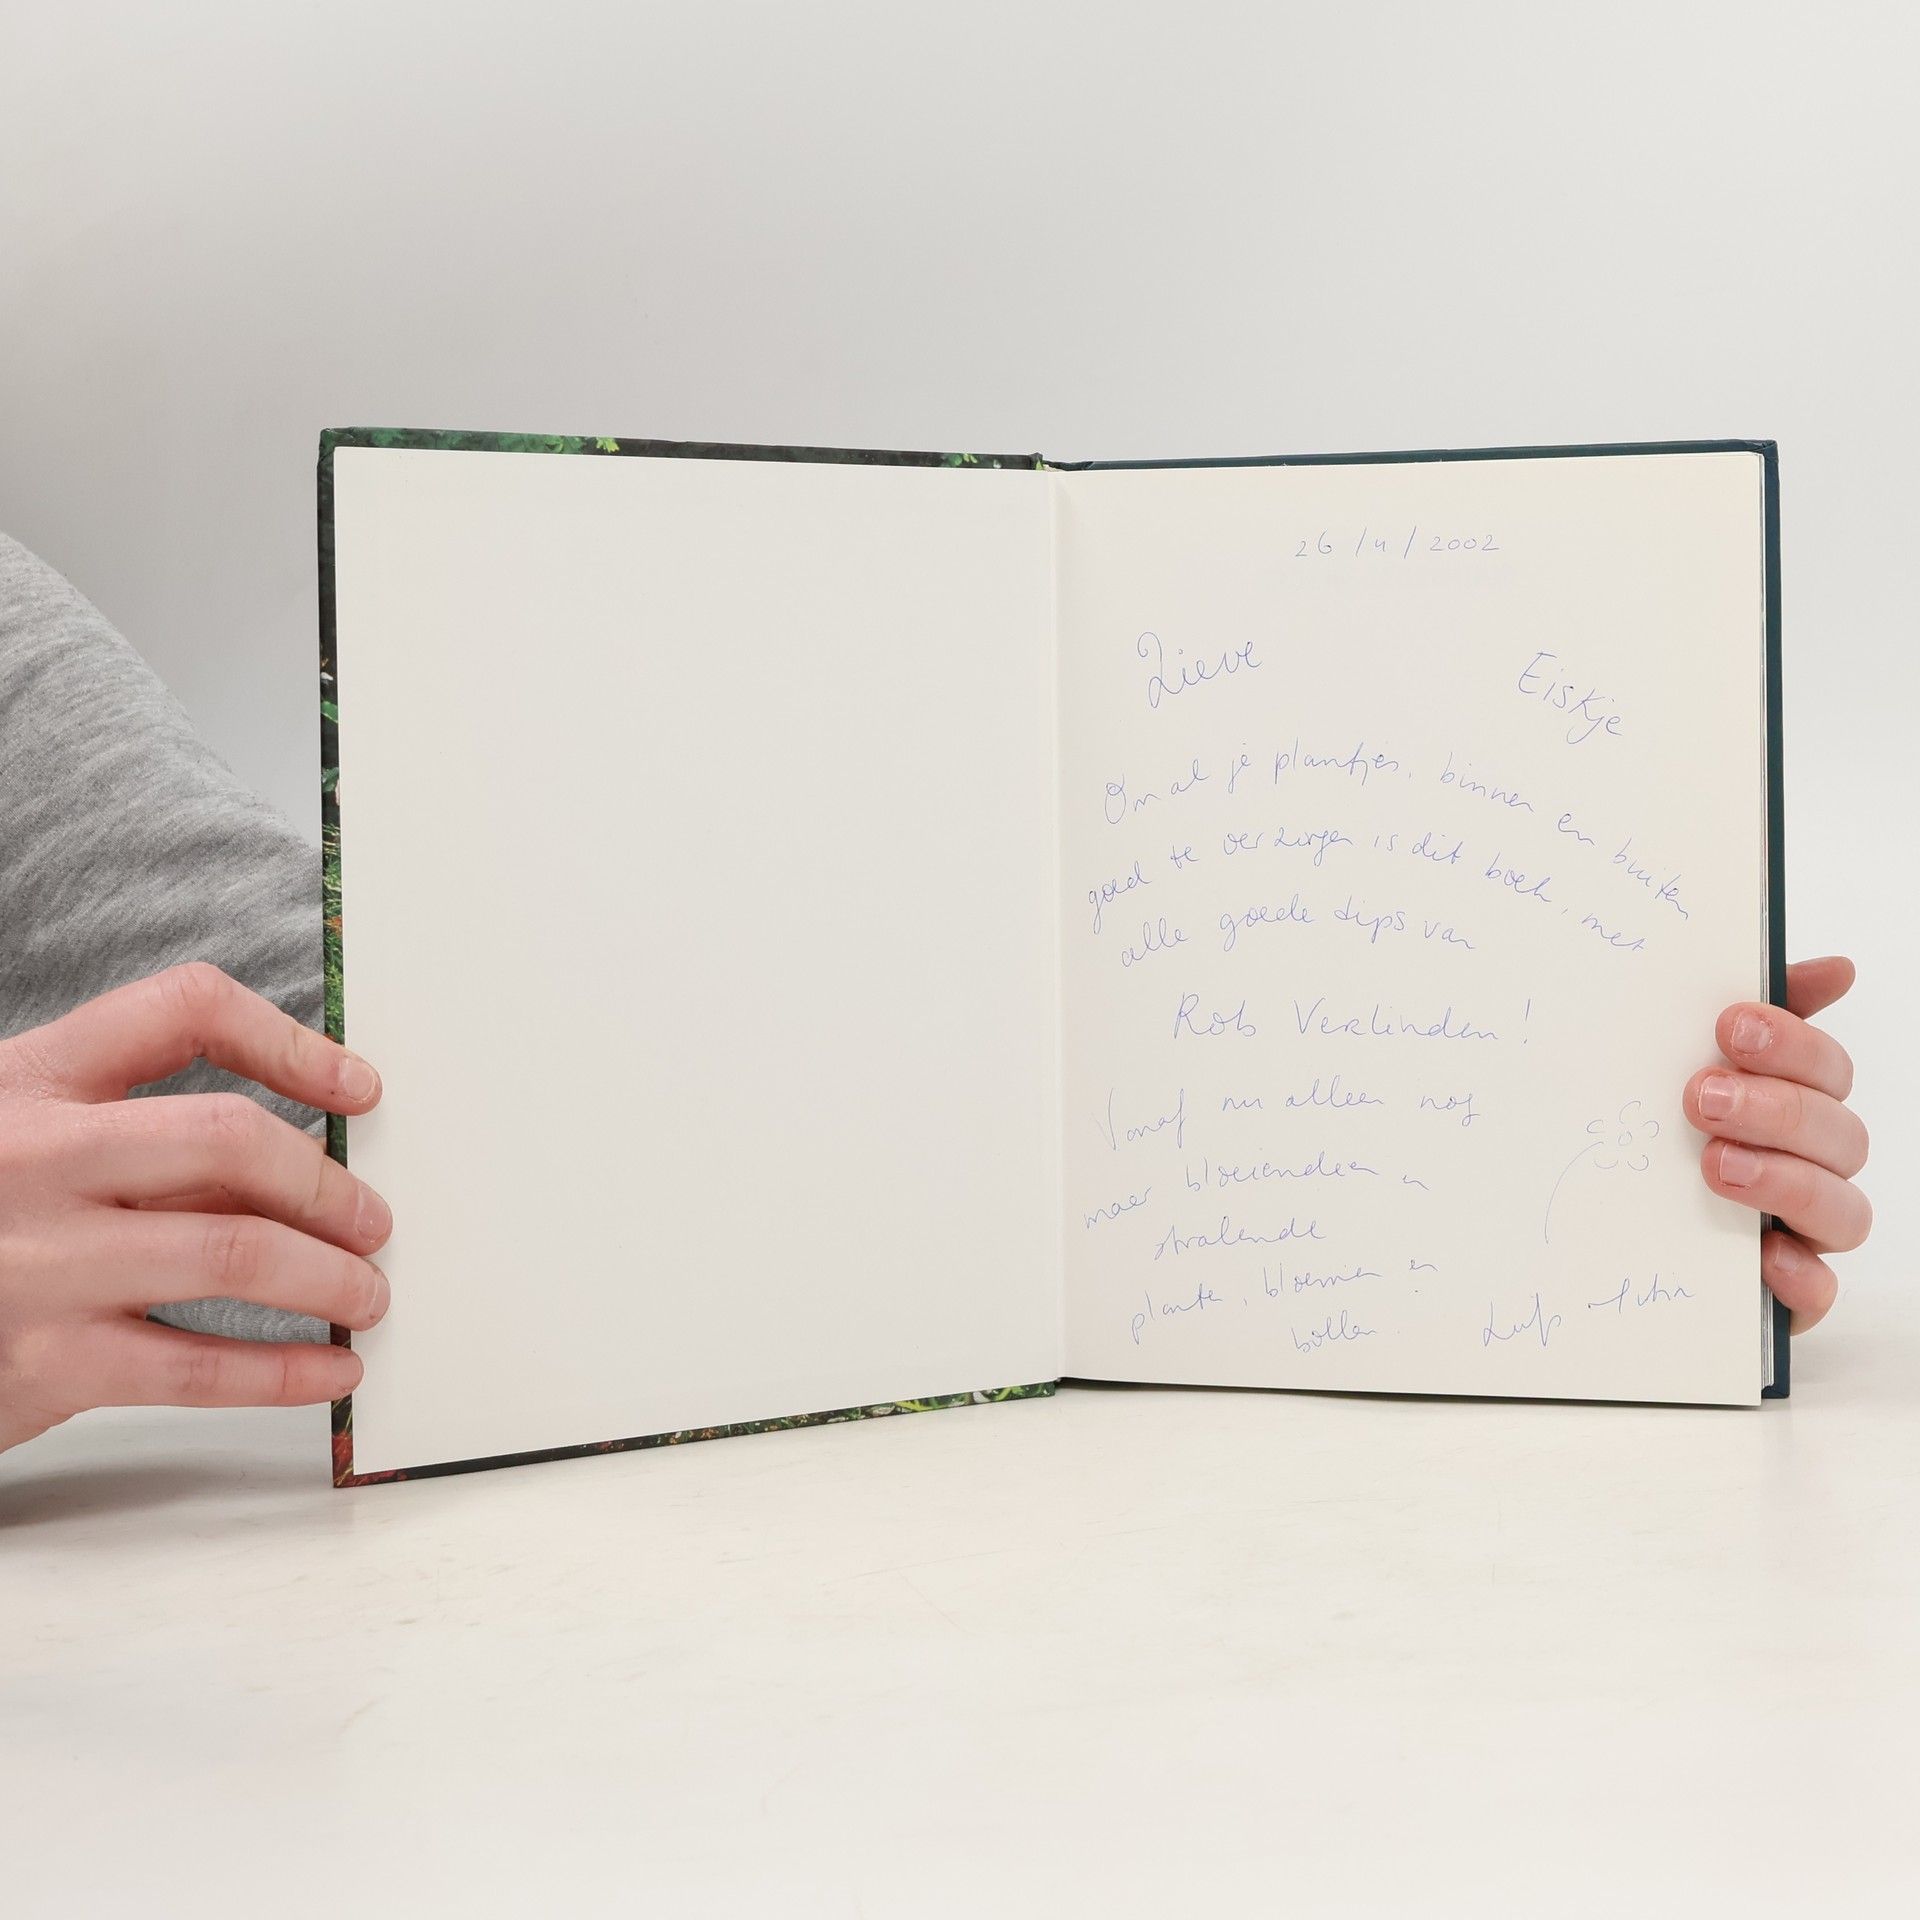 26 / 4 / 2002
Lieve Eiskje
Om al je plantjes, binnen en buiten
goed te verzorgen is dit boek, met
alle goede tips van
Rob Verlinden!
Vanaf nu alleen nog
maar bloeiendeen en
stralende
planten, bloemen en
bollen.
Liefs